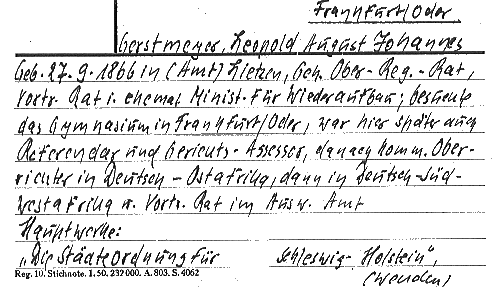 Frankfurt/Oder
Gerstmeyer, Leopold August Johannes
Geb. 27.9.1866 in (Amt) Lietzen, Geh. Ober-Reg.-Rat,
Vortr. Rat i. ehemal. Minist. für Wiederaufbau; besuchte
das Gymnasium in Frankfurt/Oder, war hier später auch
Referendar und Gerichts-Assessor, danach komm. Ober-
richter in Deutsch-Ostafrika, dann in Deutsch-Süd-
westafrika u. Vortr. Rat im Ausw. Amt
Hauptwerke:
"Die Städteordnung für Schleswig-Holstein",
Reg. 10. Stichnote. 1. 50. 232000. A. 803. S. 4062
(wenden)